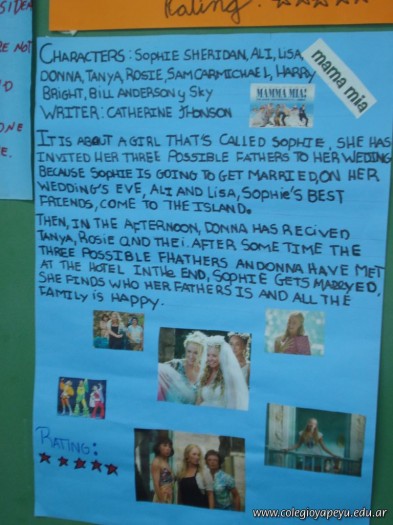 Rating:
CHARACTERS: SOPHIE SHERIDAN, ALI, LISA,
DONNA, TANYA, ROSIE, SAM CARMICHAEL, HARRY
BRIGHT, BILL ANDERSON y SKY
WRITER: CATHERINE JHONSON
mama mia
MAMMA MIA!
IT IS ABOUT A GIRL THAT'S CALLED SOPHIE, SHE HAS
INVITED HER THREE POSSIBLE FATHERS TO HER WEDING
BECAUSE SOPHIE IS GOING TO GET MARRIED, ON HER
WEDDING'S EVE, ALI AND LISA, SOPHIE'S BEST
FRIENDS, COME TO THE ISLAND.
THEN, IN THE AFTERNOON, DONNA HAS RECIVED
TANYA, ROSIE AND THEI. AFTER SOME TIME THE
THREE POSSIBLE FHATHERS AN DONNA HAVE MET
AT THE HOTEL IN THE END, SOPHIE GETS MARRYED,
SHE FINDS WHO HER FATHERS IS AND ALL THE
FAMILY IS HAPPY.
RATING:
www.colegioyapeyu.edu.ar